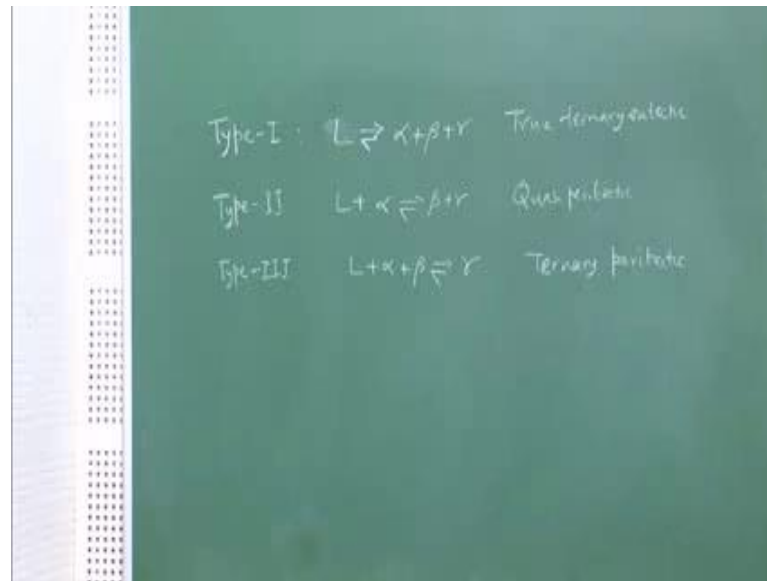 Type-I : L ⇌ α+β+γ True ternary eutectic
Type-II L+α ⇌ β+γ Quasi peritectic
Type-III L+α+β ⇌ γ Ternary peritectic